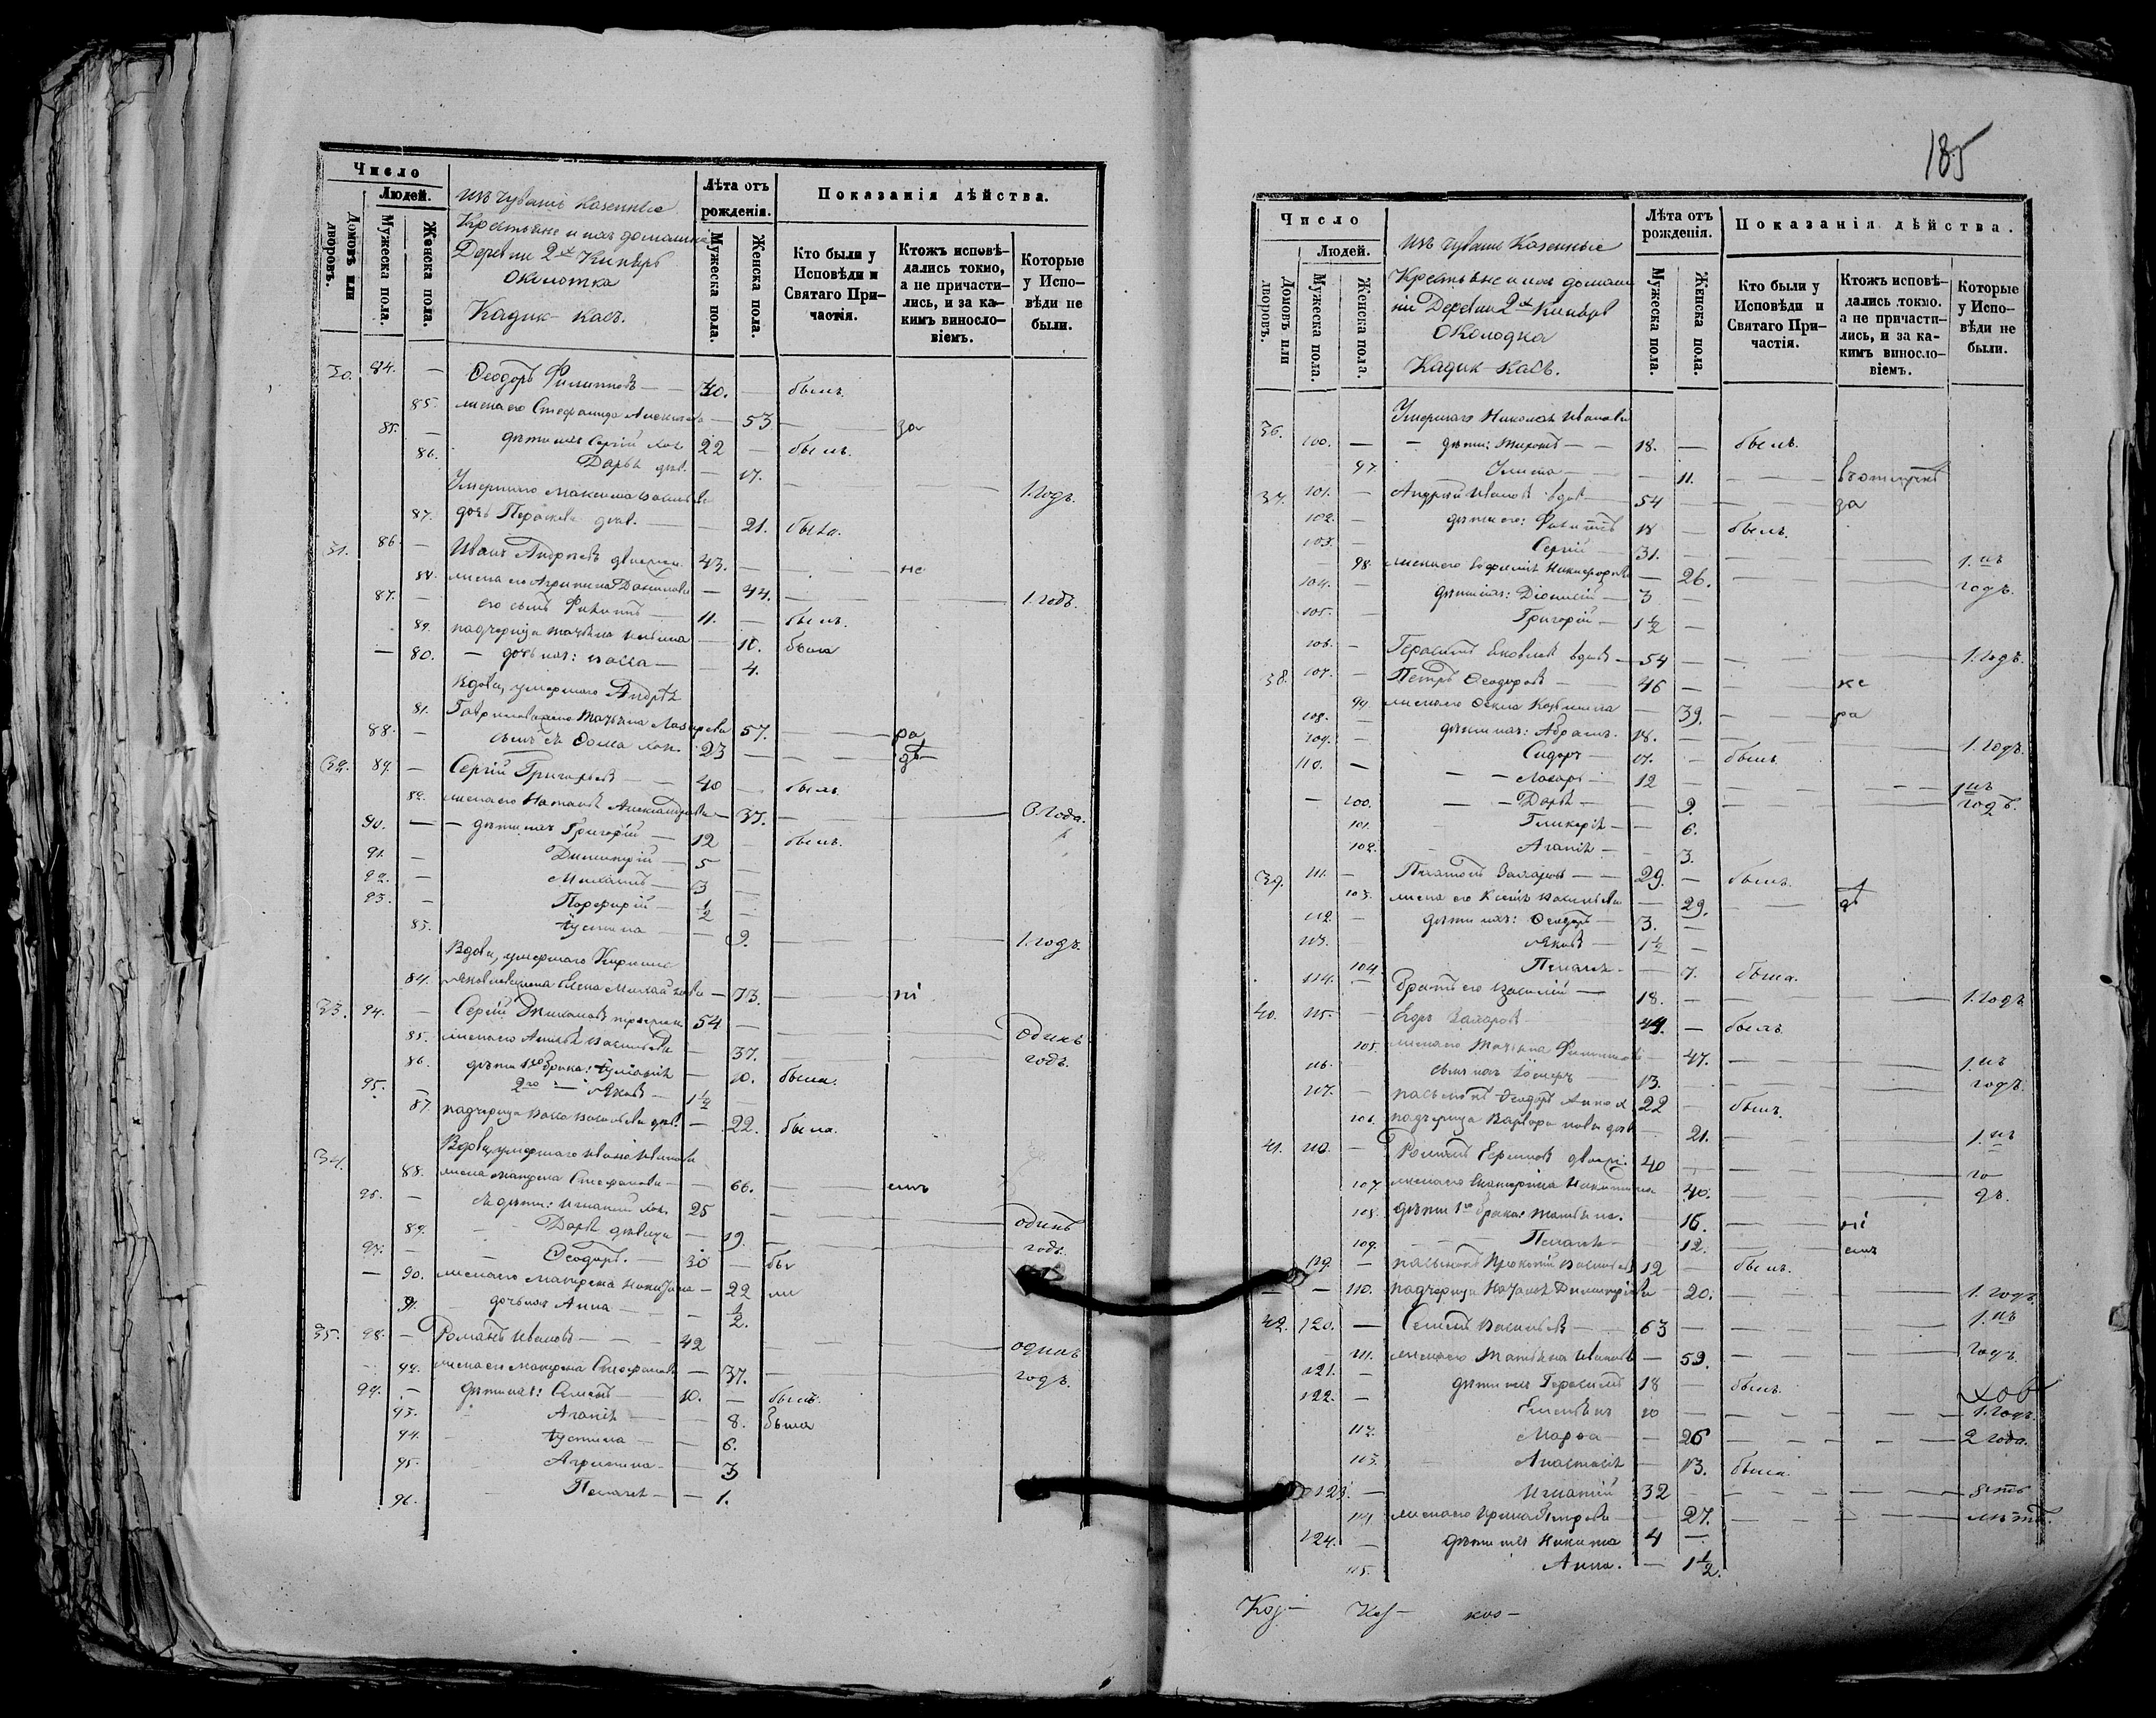 Число
Людей.
Домовъ или дворовъ.
Мужеска пола.
Женска пола.
Изъ чувашъ казенные
Крестьяне и ихъ домашніе
Деревни 2й Кинѣръ
околотка
Кадик-касъ.
Лѣта отъ рожденія.
Мужеска пола.
Женска пола.
Показанія дѣйства.
Кто были у Исповѣди и Святаго Причастія.
Ктожъ исповѣдались токмо, а не причастились, и за какимъ винословіемъ.
Которые у Исповѣди не были.
30. 84. — Ѳеодоръ Филипповъ — 50. — былъ.
85. жена его Стефанида Алексѣева — 53 — за
85. — дѣти ихъ Сергій хол. 22 — былъ.
86. Дарья дѣв. — 17. — 1. годъ.
Умершаго Максима Васильева
87. дочь Параскева дѣв. — 21. была.
31. 86. — Иванъ Андреевъ 43. — не
88. жена его Агрипина Данилова — 44. — 1. годъ.
87. — его сынъ Филиппъ — 11. — былъ.
89. падчерица Татьяна — 10. была
— 80. — дочь ихъ: Васса — 4.
Вдова, умершаго Андрея
81. Гаврилова жена Татьяна Лазарева 57. — ра
88. — сынъ ея Ѳома хол. 23 — ди
32. 89. — Сергій Григорьевъ — 40 — былъ.
82. жена его Наталья Александрова — 37. — 3 года.
90. — дѣти ихъ Григорій — 12 — былъ.
91. — Димитрій — 5 —
92. — Михаилъ — 3 —
93. — Порфирій — ½ —
83. Іустина — 9. — 1. годъ.
Вдова, умершаго Кирилла
84. Яковлева жена Елена Михайлова — 73. — ні
33. 94. — Сергій Тихоновъ 54 — одинъ
85. жена его Анна Васильева — 37. — годъ.
86. дѣти 1го брака: Іуліанія — 10. была.
95. — 2го — Яковъ — 1½ —
87. падчерица Васса Васильева дѣв. — 22. была.
34. Вдова, умершаго Ивана Иванова
88. жена Матрена Стефанова — 66. — емъ
96. — ея дѣти: Игнатій хол. 25 — одинъ
89. Дарья дѣвица — 19. — годъ.
97. — Ѳеодоръ. — 30 — бы
— 90. жена его Матрена Никитина — 22 ли
91. дочь ихъ Анна — ½.
35. 98. — Романъ Ивановъ — 42 — одинъ
92. жена его Матрена Стефанова — 37. — годъ.
99. — дѣти ихъ: Симеонъ — 10. — былъ.
93. Агапія — 8. была
94. Іустина — 6.
95. Агрипина — 3
96. — Пелагея — 1.
185
Число
Людей.
Домовъ или дворовъ.
Мужеска пола.
Женска пола.
Изъ чувашъ Казенные
Крестьяне и ихъ домаш
ніе Деревни 2й Кинѣръ
околодка
Кадик-касъ.
Лѣта отъ рожденія.
Мужеска пола.
Женска пола.
Показанія дѣйства.
Кто были у Исповѣди и Святаго Причастія.
Ктожъ исповѣдались токмо. а не причастились, и за какимъ винословіемъ.
Которые у Исповѣди не были.
Умершаго Николая Иванова
36. 100. — дѣти: Тихонъ — 18. — былъ.
97. Улита — 11. — въ отлучкѣ
37. 101. — Андрей Ивановъ вдов — 54 — за
102. — дѣти его: Филиппъ 18 — былъ.
103. — Сергій — 31. — 1. нъ
98. жена его Евфимія Никифорова — 26. — годъ.
104. — дѣти ихъ: Діонисій — 3 —
105. — Григорій — 1½ —
106. — Герасимъ Яковлевъ вдовъ — 54 — 1. годъ.
38. 107. — Петръ Ѳеодоровъ — 46 — не
99. жена его Ѳекла — 39. — ра
108. — дѣти ихъ: Абрамъ. 18. — 1. годъ.
109. Сидоръ — 17. — былъ
110. — Захаръ — 12 — 1 нъ
— 100. — Дарья — 9. — годъ.
101. Гликерія — 6.
102. Агапія — 3.
39. 111. — Платонъ Захаровъ — 29. — былъ.
103. жена его Ксенія Васильева — 29. — ди
112. — дѣти ихъ: Ѳеодоръ — 3. —
113. — Яковъ — 1½ —
104. Пелагея — 7. была.
114. — братъ его Василій — 18. — 1. годъ
40. 115. — Егоръ Захаровъ — 49. — былъ
105. жена его Татьяна Филиппова — 47. — 1. нъ
116. сынъ ихъ — 13. — годъ.
117. — пасынокъ Ѳеодоръ 22 — былъ.
106. падчерица Варвара дѣв — 21. — 1. нъ
41. 118. — Романъ Ефимовъ 40 — го
107 жена его Екатерина Никитина — 40. — дъ.
108. дѣти 1го брака: Татьяна. — 16. — ні
109. — Пелагея — 12. — емъ
119. — пасынокъ Прокопій Васильевъ 12 — былъ.
— 110. падчерица Наталья Димитріева — 20. — 1. годъ.
42. 120. — Семенъ Васильевъ — 63 — 1. нъ
111. жена его Татьяна Иванова — 59. — годъ.
121. — дѣти ихъ Герасимъ 18 — былъ.
122. — Емельянъ 10 — 1. годъ.
112. Марѳа — 26 — 2 года.
113. Анастасія — 13. была.
123. — Игнатій 32 — 8-мъ
114 жена его Ирина Петрова — 27. — лѣтъ.
124. — дѣти ихъ Никита 4 —
115. Анна. — 1½.